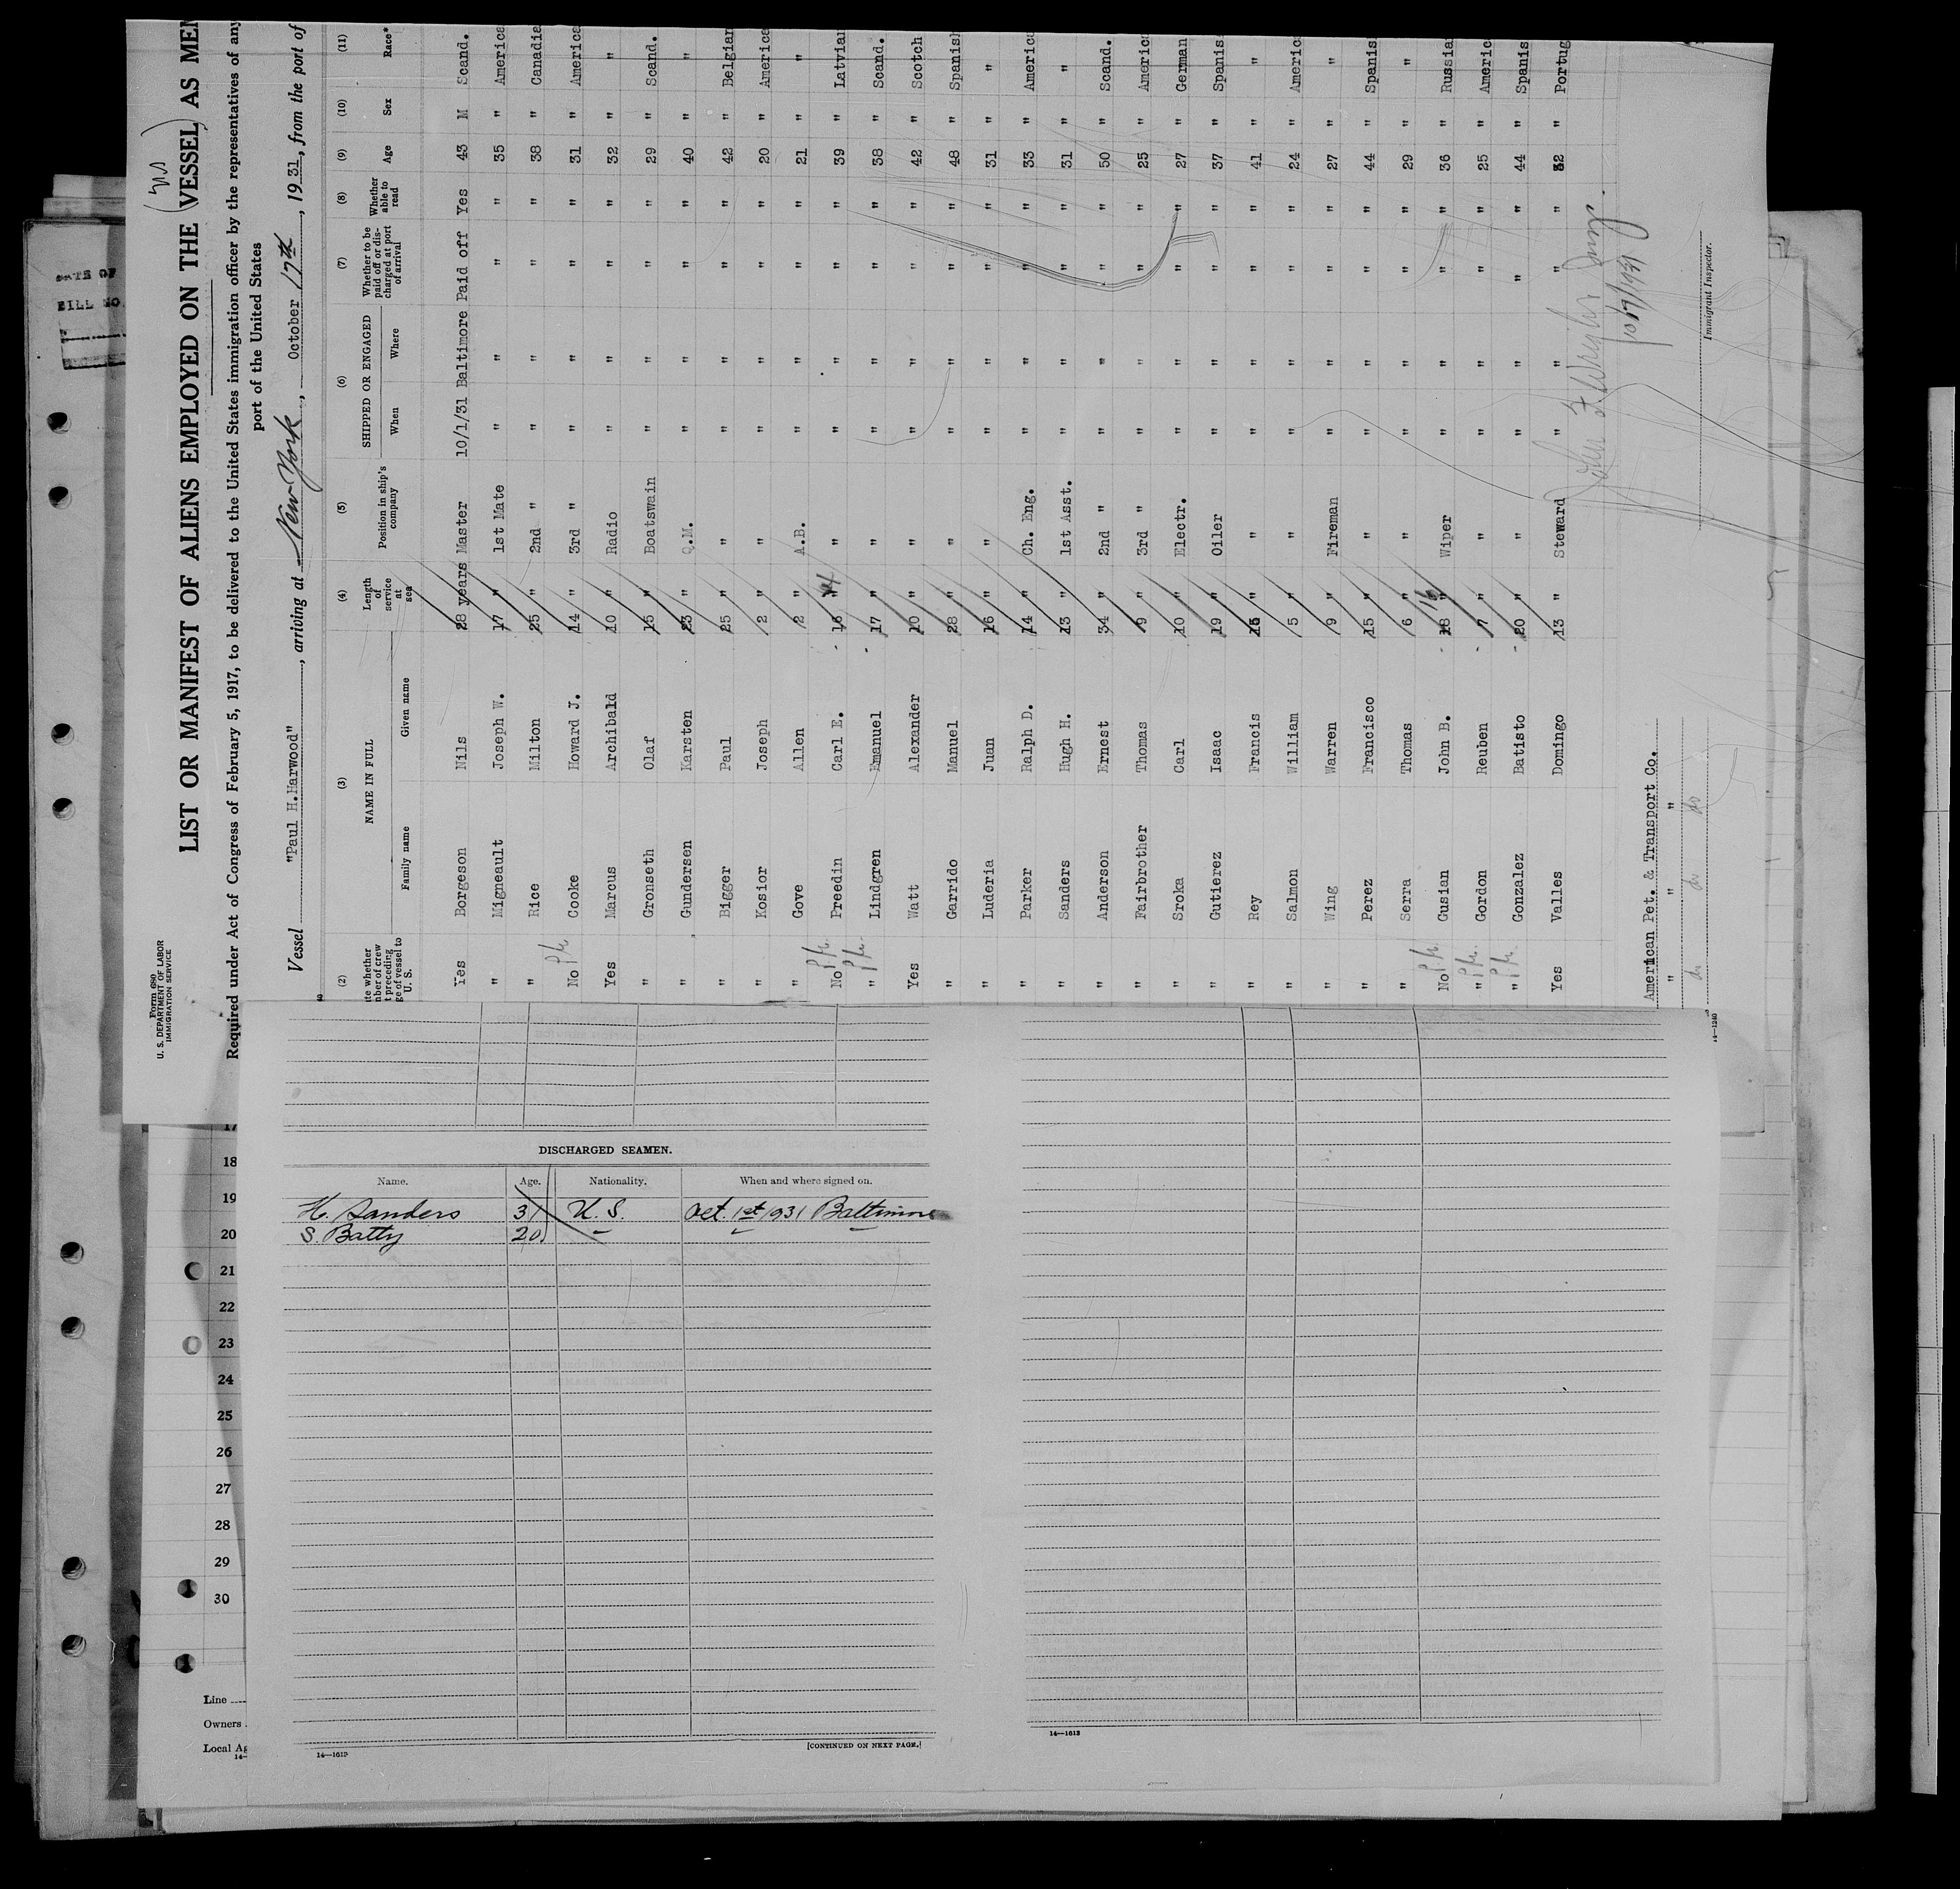 Form 680
U. S. DEPARTMENT OF LABOR
IMMIGRATION SERVICE
LIST OR MANIFEST OF ALIENS EMPLOYED ON THE VESSEL AS MEM
Required under Act of Congress of February 5, 1917, to be delivered to the United States immigration officer by the representatives of any
port of the United States
Vessel "Paul H.Harwood", arriving at New York, October 17th, 1931, from the port of
(2) (3) (4) (5) (6) (7) (8) (9) (10) (11)
NAME IN FULL Length of service at sea Position in ship's company SHIPPED OR ENGAGED Whether to be paid off or discharged at port of arrival Whether able to read Age Sex Race*
Family name Given name When Where
Yes Borgeson Nils 28 years Master 10/1/31 Baltimore Paid off Yes 43 M Scand.
" Migneault Joseph W. 17 " 1st Mate " " " " 35 " America
" Rice Milton 25 " 2nd " " " " " 38 " Canadia
No Cooke Howard J. 14 " 3rd " " " " " 31 " America
Yes Marcus Archibald 10 " Radio " " " " 32 " "
" Gronseth Olaf 15 " Boatswain " " " " 29 " Scand.
" Gundersen Karsten 23 " Q.M. " " " " 40 " "
" Bigger Paul 25 " " " " " " 42 " Belgian
" Kosior Joseph 2 " " " " " " 20 " America
" Gove Allen 2 " A.B. " " " " 21 " "
No Preedin Carl E. 16 " " " " " " 39 " Latvian
" Lindgren Emanuel 17 " " " " " " 38 " Scand.
Yes Watt Alexander 10 " " " " " " 42 " Scotch
" Garrido Manuel 28 " " " " " " 48 " Spanish
" Luderia Juan 16 " " " " " " 31 " "
" Parker Ralph D. 14 " Ch. Eng. " " " " 33 " America
" Sanders Hugh H. 13 " 1st Asst. " " " " 31 " "
" Anderson Ernest 34 " 2nd " " " " " 50 " Scand.
" Fairbrother Thomas 9 " 3rd " " " " " 25 " America
" Sroka Carl 10 " Electr. " " " " 27 " German
" Gutierez Isaac 19 " Oiler " " " " 37 " Spanis
" Rey Francis " " " " " " 41 " "
" Salmon William 5 " " " " " " 24 " Americ
" Wing Warren 9 " Fireman " " " " 27 " "
" Perez Francisco 15 " " " " " " 44 " Spanis
" Serra Thomas 6 " " " " " " 29 " "
No Gusian John B. 18 16 " Wiper " " " " 36 " Russia
" Gordon Reuben 7 " " " " " " 25 " Americ
" Gonzalez Batisto 20 " " " " " " 44 " Spanis
Yes Valles Domingo 13 " Steward " " " " 32 " Portug
American Pet. & Transport Co.
" " "
do do do
Immigrant Inspector.
14—1240
DISCHARGED SEAMEN.
Name. Age. Nationality. When and where signed on.
H. Sanders 31 U. S. Oct. 1st 1931 Baltimore
S. Batty 20
14—1612
[CONTINUED ON NEXT PAGE.]
14—1612
17
18
19
20
21
22
23
24
25
26
27
28
29
30
Line
Owners
Local Ag
14—